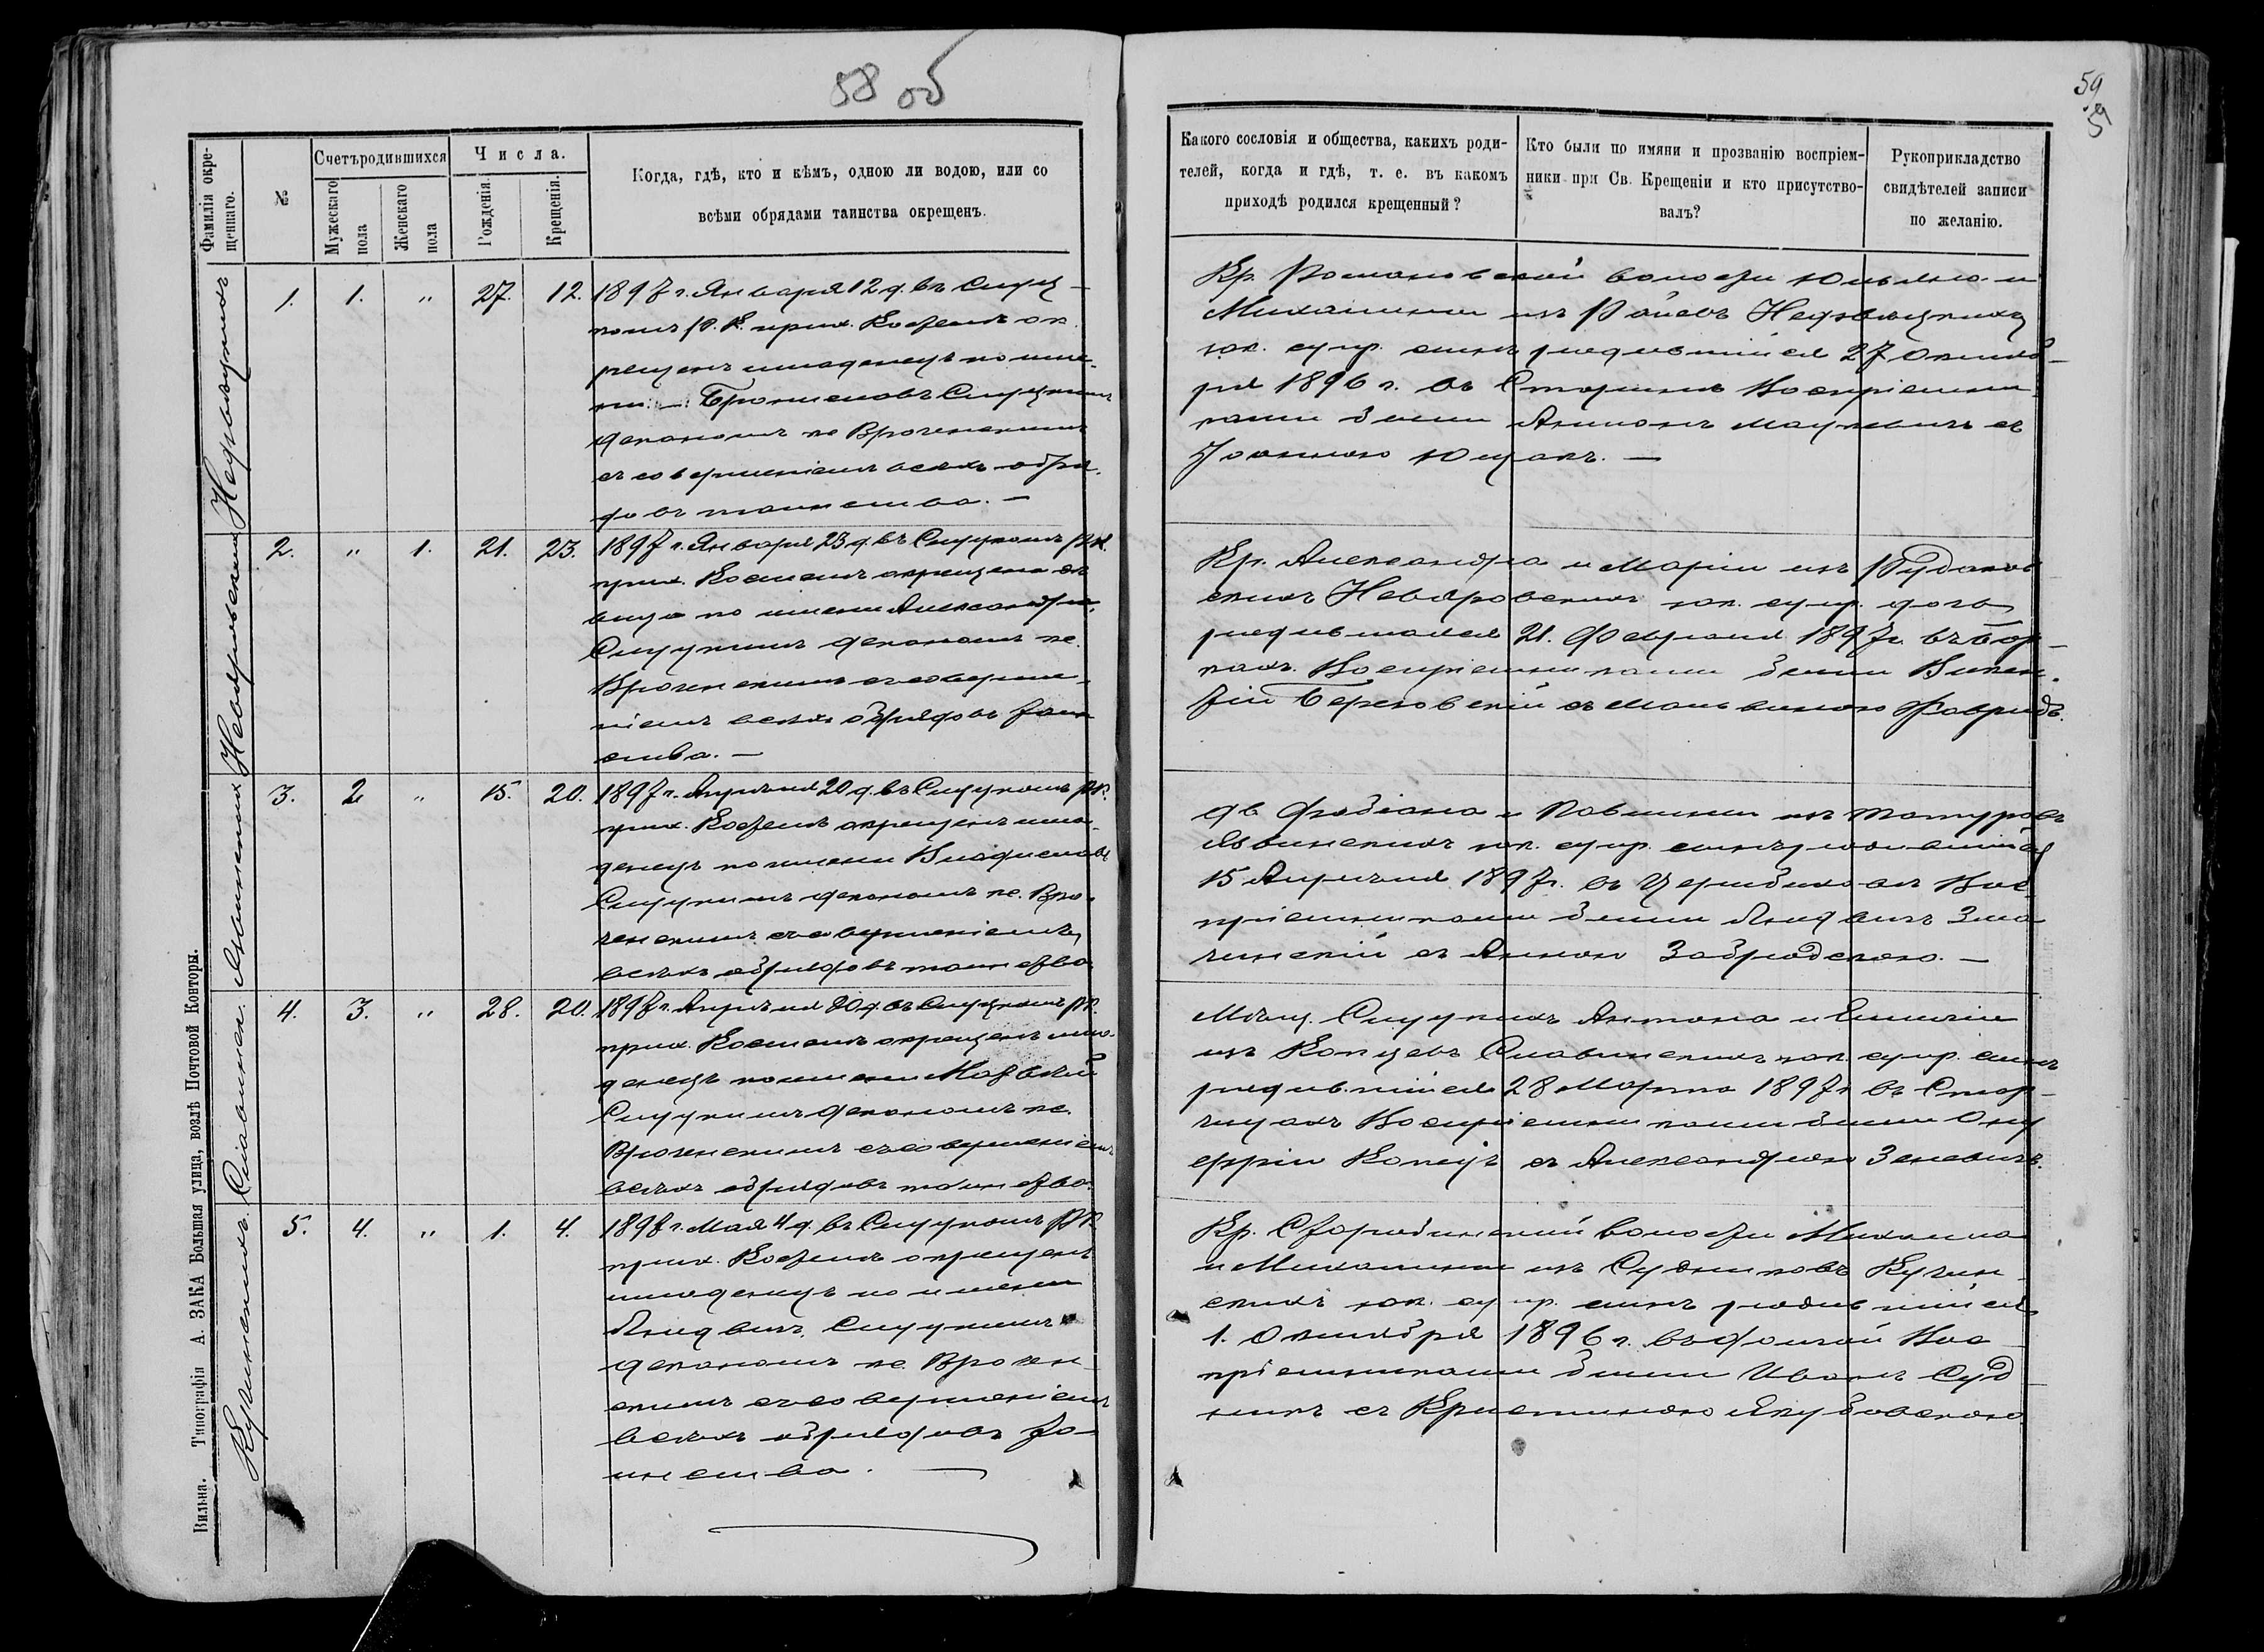 58 об
59
59
Фамилія окрещеннаго.
№
Счетъ родившихся
Мужескаго пола
Женскаго пола
Числа.
Рожденія.
Крещенія.
Когда, гдѣ, кто и кѣмъ, одною ли водою, или со
всѣми обрядами таинства окрещенъ.
Какого сословія и общества, какихъ роди-
телей, когда и гдѣ, т. е. въ какомъ
приходѣ родился крещенный?
Кто были по имяни и прозванію воспріем-
ники при Св. Крещеніи и кто присутство-
валъ?
Рукоприкладство
свидѣтелей записи
по желанію.
1. 1. „ 27. 12.
1897 г. Января 12 д. въ Слуц-
комъ Р. К. прих. Костелѣ ок
рещенъ младенецъ по име-
ни — Брониславъ Слуцкимъ
деканомъ кс Врочинскимъ
съ совершеніемъ всѣхъ обря-
довъ таинства. —
Кр. Романовской волости Юльяна и
Михалины изъ
зак. супр. сынъ родившійся 27 Октяб-
ря 1896 г. въ Воспріемни-
ками были Антонъ Мацкевичъ съ
Юцакъ. —
Неварѣвскихъ
2. „ 1. 21. 23.
1897 г. Января 23 д. въ Слуцкомъ Р.К.
прих. Костелѣ окрещена дѣ
вица по имени Александра,
Слуцкимъ деканомъ кс.
Врочинскимъ съ соверше-
ніемъ всѣхъ обрядовъ таин
ства. —
Кр. Александра и Маріи изъ Рудаков
скихъ зак. супр. дочь
родившаяся 21. Февраля 1897 г. въ
кахъ. Воспріемниками были Викен-
тій Березовскій съ
Явинскихъ
3. 2 „ 15. 20.
1897 г. Апрѣля 20 д. въ Слуцкомъ Р.К.
прих. Костелѣ окрещенъ мла-
денецъ по имени Владиславъ
Слуцкимъ деканомъ кс. Вро-
чинскимъ съ совершеніемъ
всѣхъ обрядовъ таинства
дв Фабіана и Павлины изъ Татуровъ
зак. супр. сынъ родившійся
15 Апрѣля 1897 г. въ Вос
пріемниками были Людвигъ
съ Анною Забродскою. —
Славинск.
4. 3. „ 28. 20.
1897 г. Апрѣля 20 д. въ Слуцкомъ Р.К.
прих. Костелѣ окрещенъ мла-
денецъ по имени Матвѣй
Слуцкимъ деканомъ кс.
Врочинскимъ съ совершеніем
всѣхъ обрядовъ таинства.
Мѣщ. Слуцкихъ Антона и Емиліи
изъ Копцевъ Славинскихъ зак. супр. сынъ
родившійся 28 Марта 1897 г. въ Стар-
чицахъ Воспріемниками были Ону
фрій Копецъ съ Александрою Зеневичъ.
Кучинскихъ.
5. 4. „ 1. 4.
1897 г. Мая 4 д. въ Слуцкомъ Р.К.
прих. Костелѣ окрещенъ
младенецъ по имени
Людвигъ, Слуцкимъ
деканомъ кс. Врочин-
скимъ съ совершеніемъ
всѣхъ обрядовъ та-
инства. —
Кр. Старобинской волости Михаила
и Михалины изъ Судниковъ Кучин-
скихъ зак. супр. сынъ родившійся
1. Октября 1896 г. въ Вос-
пріемниками были Иванъ Суд
никъ съ Кристиною Якубовскою
Вильна. Типографія А. ЗАКА Большая улица, возлѣ Почтовой Конторы.